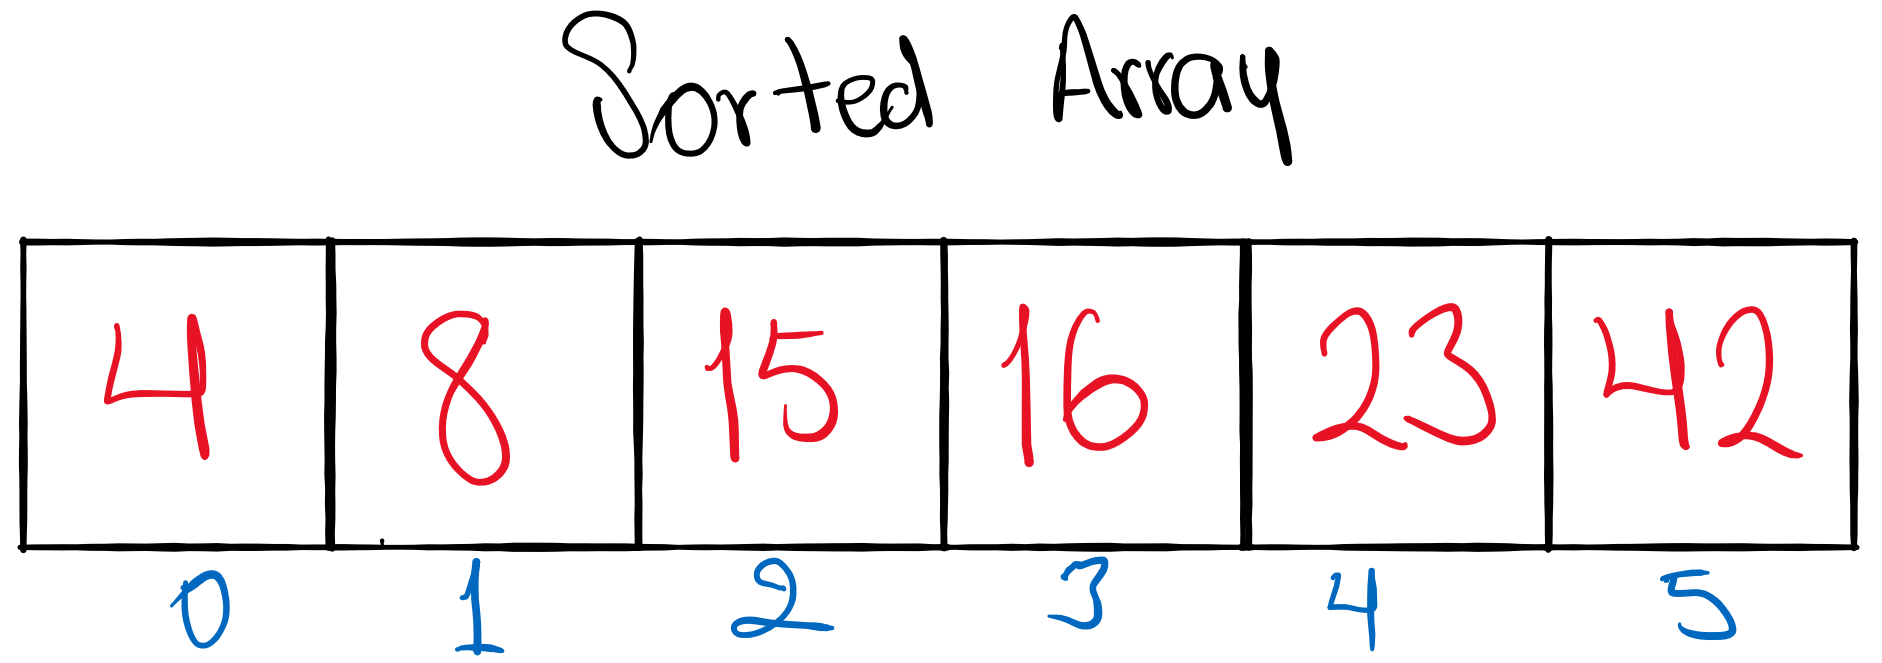 Sorted Array
4 8 15 16 23 42
0 1 2 3 4 5